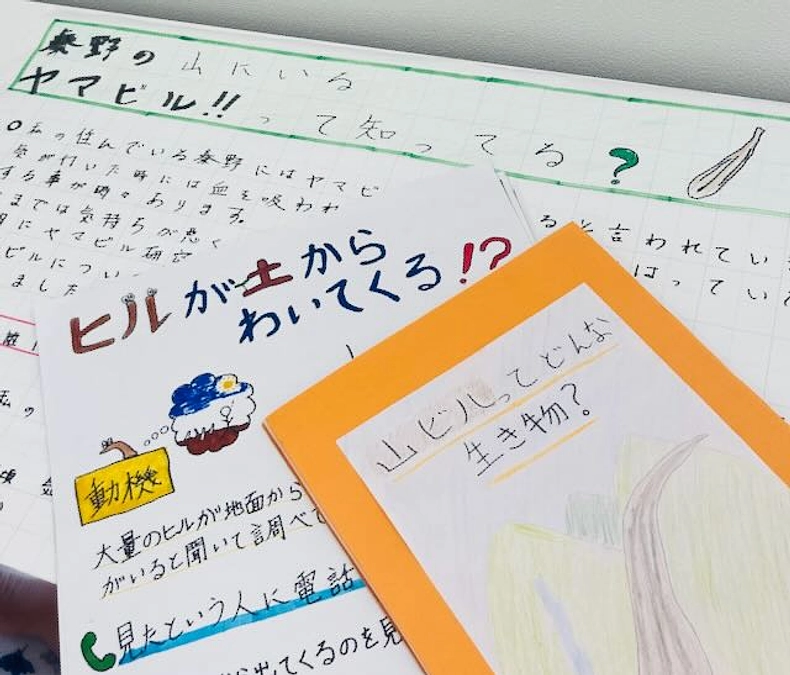 秦野の山にいる
ヤマビル!!って知ってる?
○私の住んでいる秦野にはヤマビ
気が付いた時には血を吸われ
する事が時々あります。
までは気持ちが悪く
にヤマビル研究
ビルについ
ました
ると言われてい
はっている
私の
ヒルが土から
わいてくる!?
動機
大量のヒルが地面から
がいると聞いて調べて
見たという人に電話
出てくるのを見
山ビルってどんな
生き物?